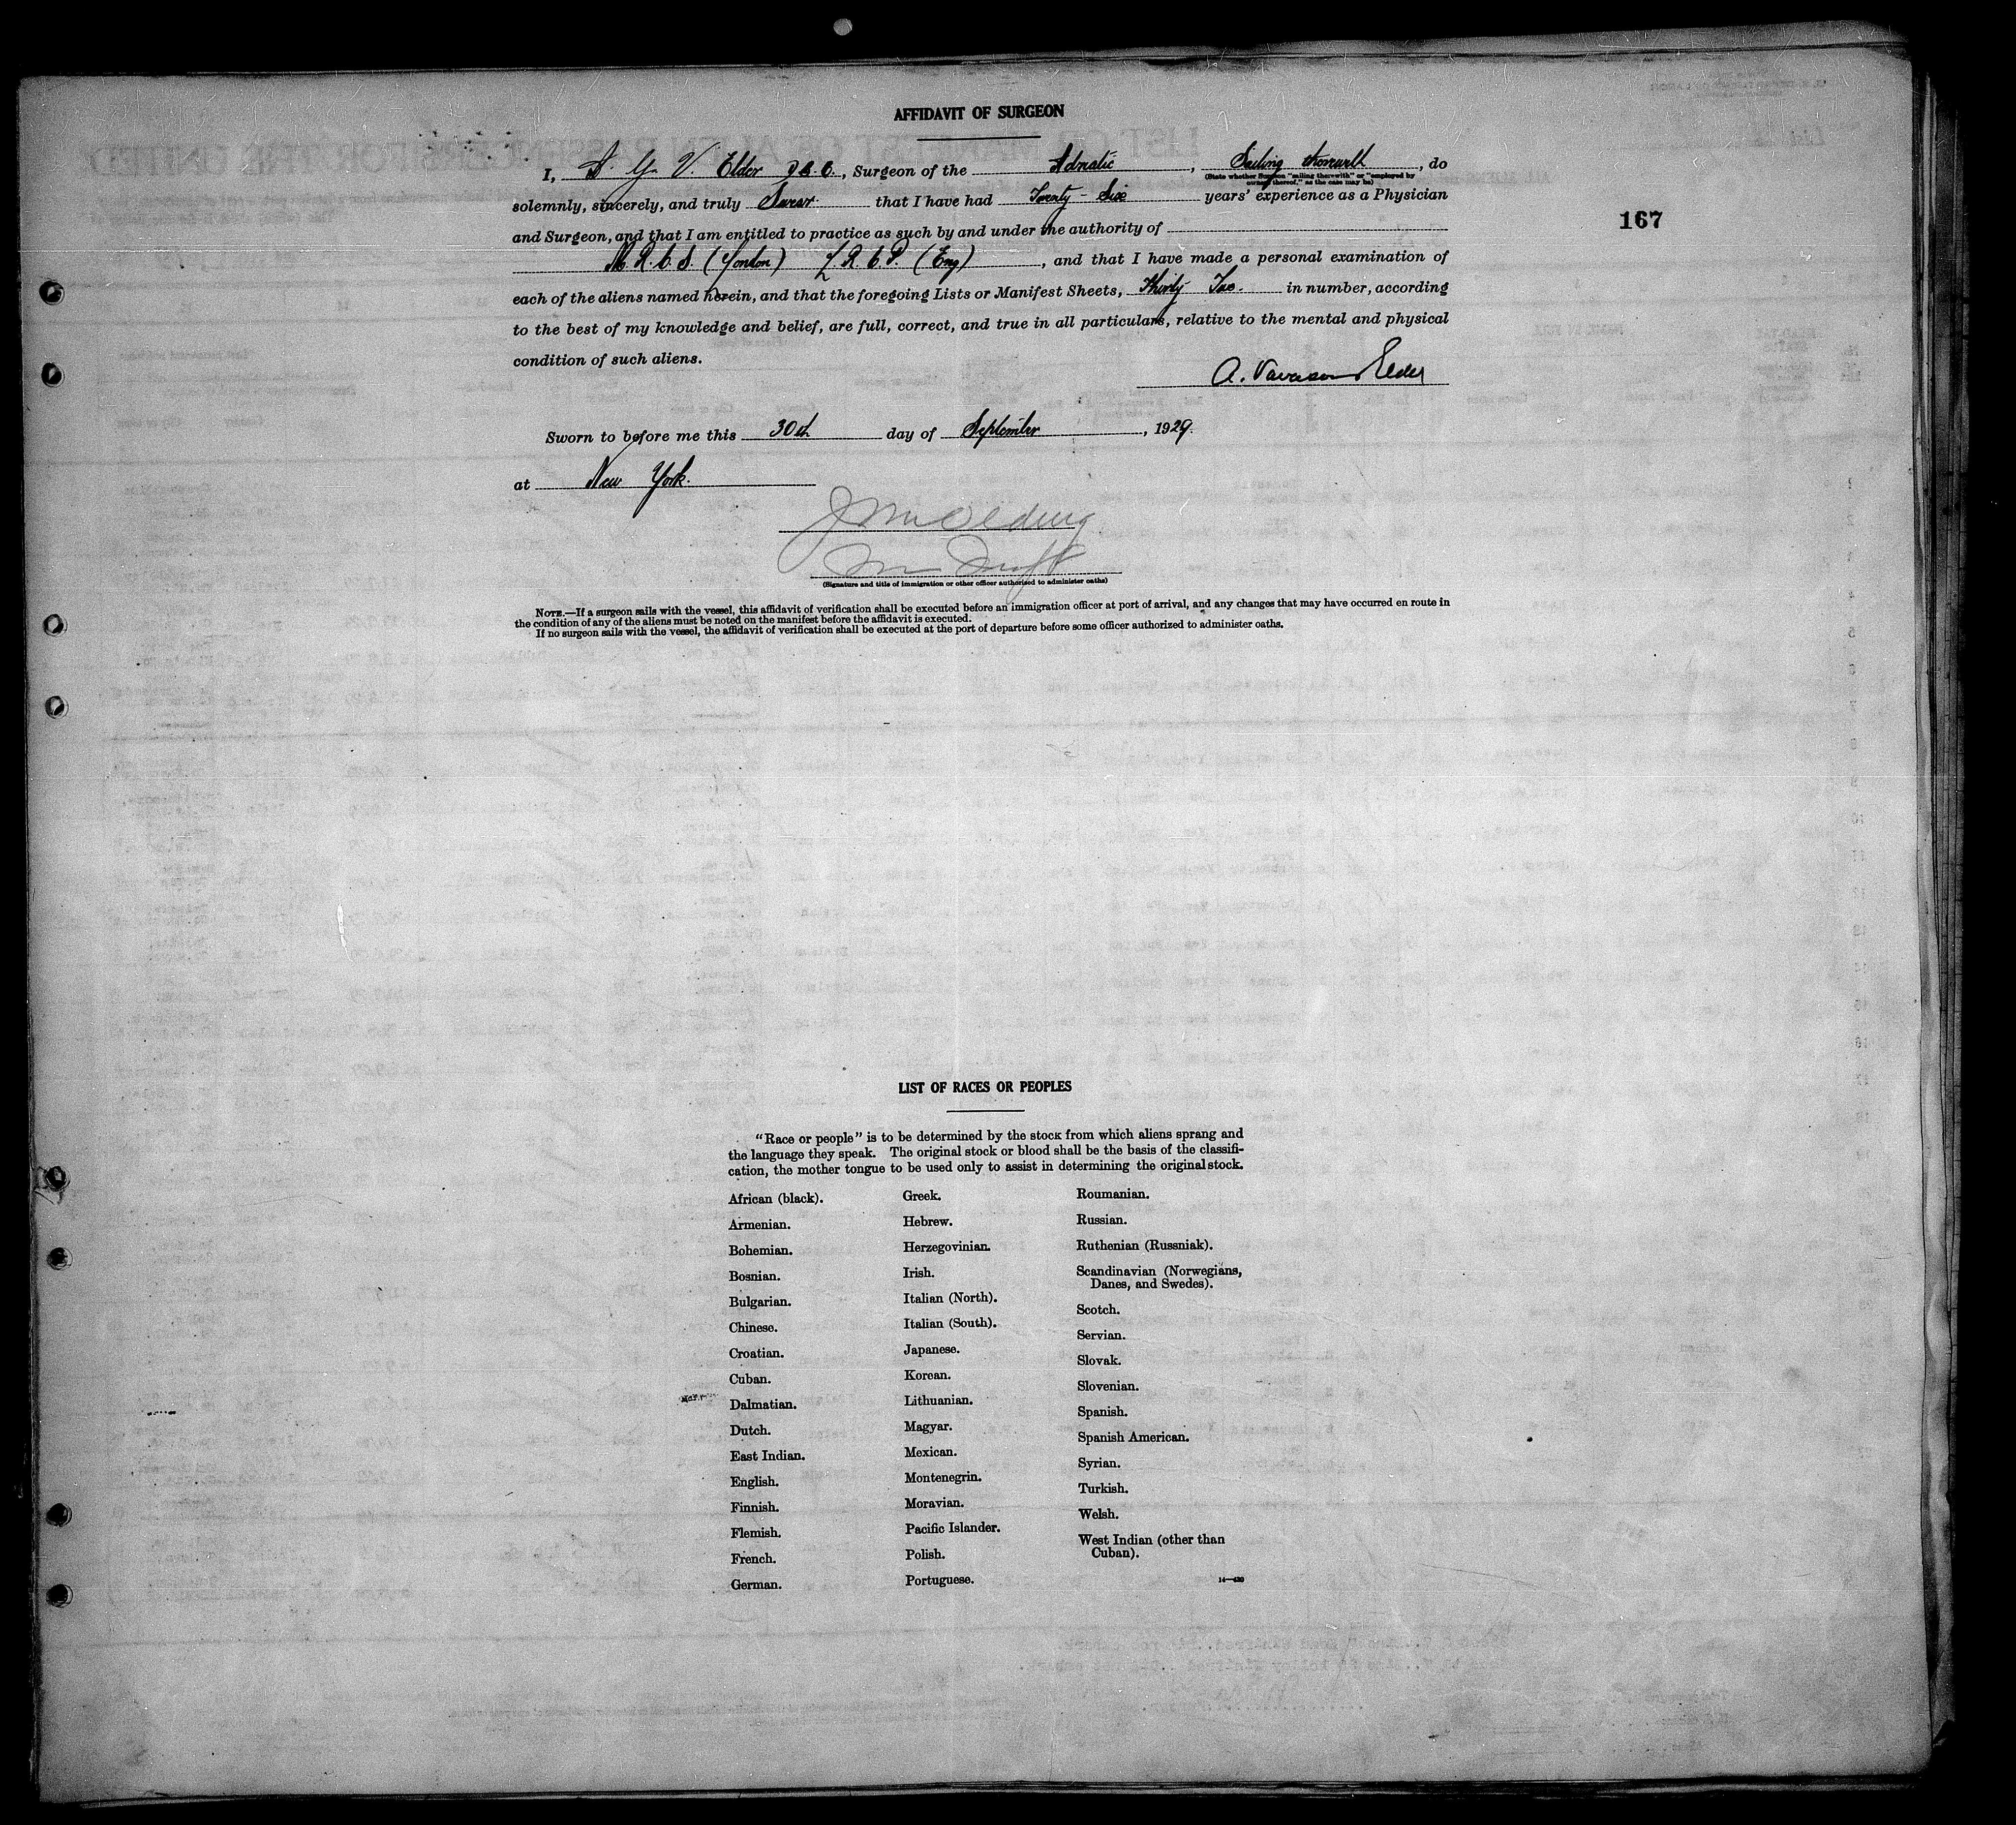 AFFIDAVIT OF SURGEON
I, V. Elder, Surgeon of the Adriatic, Sailing therewith, do
(State whether Surgeon "sailing therewith" or "employed by
owners thereof," as the case may be)
solemnly, sincerely, and truly Swear that I have had Twenty-Six years' experience as a Physician
and Surgeon, and that I am entitled to practice as such by and under the authority of
M.R.C.S. (London) L.R.C.P. (Eng), and that I have made a personal examination of
each of the aliens named herein, and that the foregoing Lists or Manifest Sheets, Thirty Two in number, according
to the best of my knowledge and belief, are full, correct, and true in all particulars, relative to the mental and physical
condition of such aliens.
A. Elder
Sworn to before me this 30th day of September, 1929.
at New York.
(Signature and title of immigration or other officer authorized to administer oaths)
NOTE.—If a surgeon sails with the vessel, this affidavit of verification shall be executed before an immigration officer at port of arrival, and any changes that may have occurred en route in
the condition of any of the aliens must be noted on the manifest before the affidavit is executed.
If no surgeon sails with the vessel, the affidavit of verification shall be executed at the port of departure before some officer authorized to administer oaths.
167
LIST OF RACES OR PEOPLES
"Race or people" is to be determined by the stock from which aliens sprang and
the language they speak. The original stock or blood shall be the basis of the classifi-
cation, the mother tongue to be used only to assist in determining the original stock.
African (black).
Armenian.
Bohemian.
Bosnian.
Bulgarian.
Chinese.
Croatian.
Cuban.
Dalmatian.
Dutch.
East Indian.
English.
Finnish.
Flemish.
French.
German.
Greek.
Hebrew.
Herzegovinian.
Irish.
Italian (North).
Italian (South).
Japanese.
Korean.
Lithuanian.
Magyar.
Mexican.
Montenegrin.
Moravian.
Pacific Islander.
Polish.
Portuguese.
Roumanian.
Russian.
Ruthenian (Russniak).
Scandinavian (Norwegians,
Danes, and Swedes).
Scotch.
Servian.
Slovak.
Slovenian.
Spanish.
Spanish American.
Syrian.
Turkish.
Welsh.
West Indian (other than
Cuban).